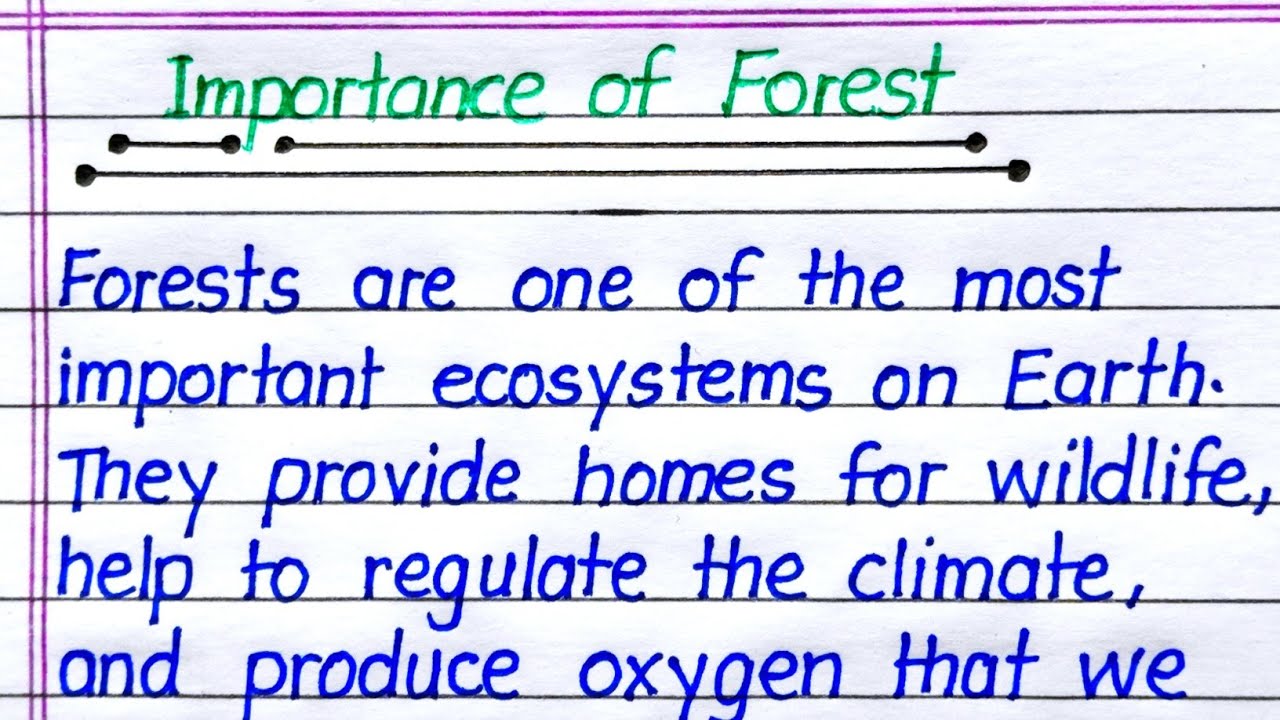 Importance of Forest
Forests are one of the most
important ecosystems on Earth.
They provide homes for wildlife,
help to regulate the climate,
and produce oxygen that we